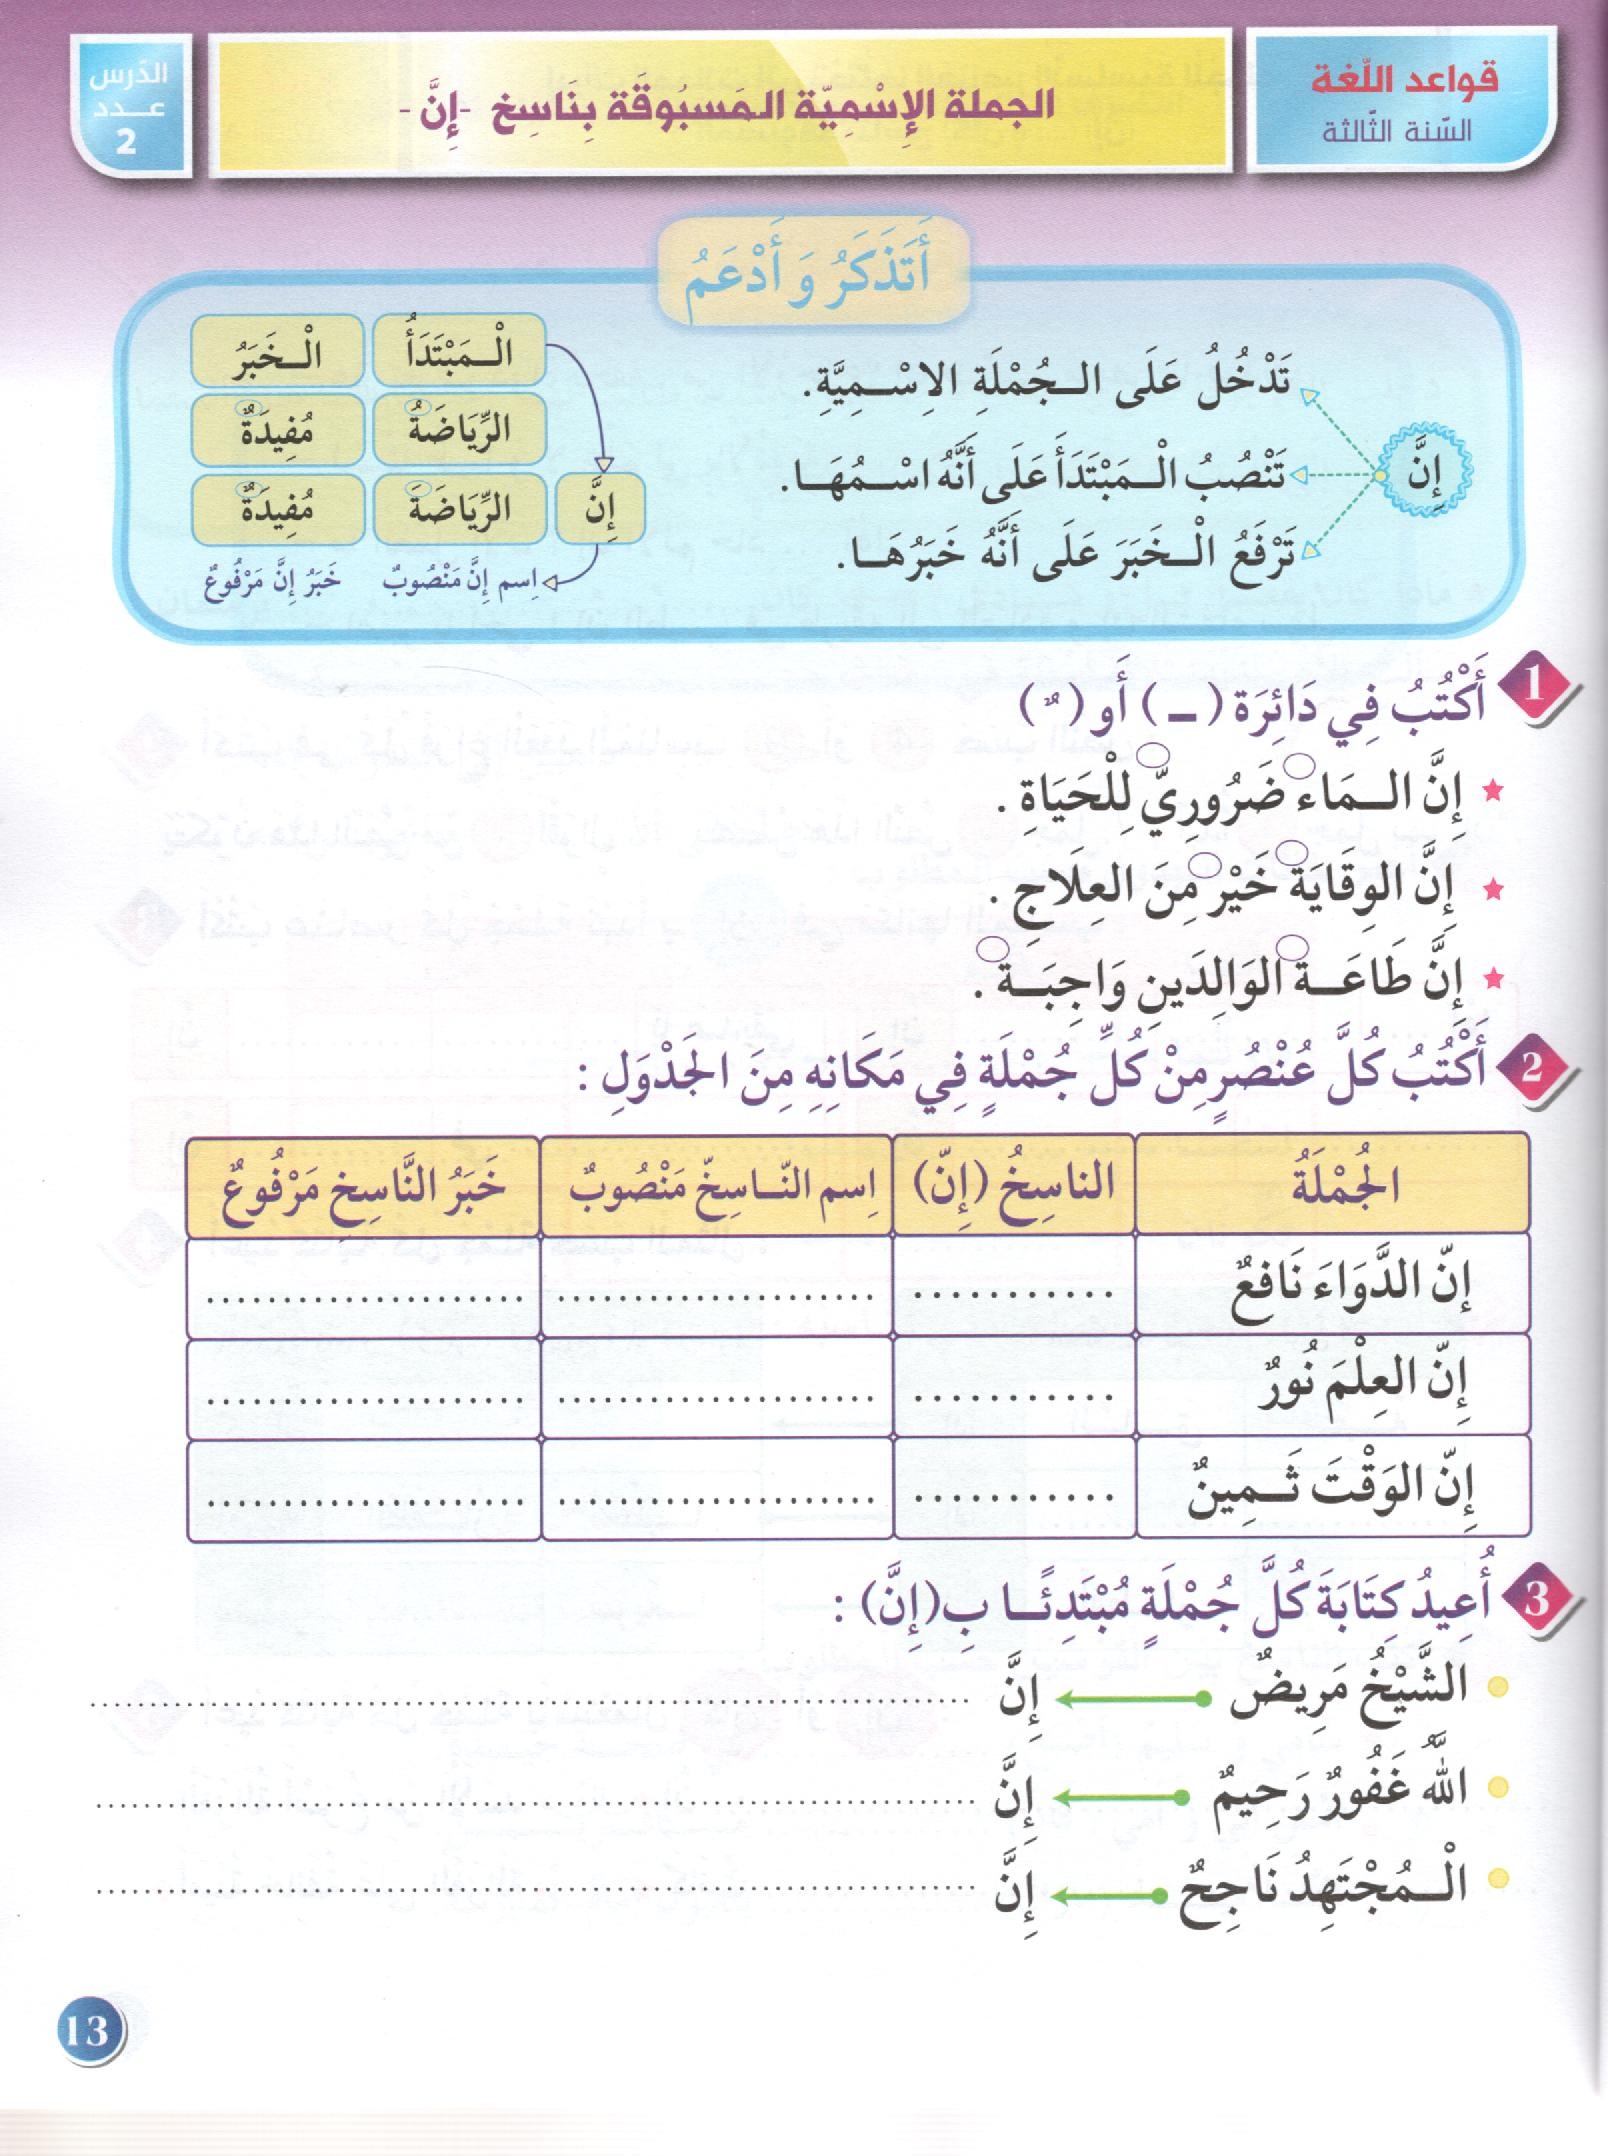 قواعد اللّغة
السّنة الثّالثة
الجملة الإسْمِيّة المَسبُوقَة بِنَاسِخ -إِنَّ-
الدّرس
عــدد
2
أَتَذَكَرُ وَ أَدْعَمُ
إِنَّ
تَدْخُلُ عَلَى الـجُمْلَةِ الاِسْـمِيَّةِ.
تَنْصُبُ الْـمَبْتَدَأَ عَلَى أَنَّهُ اسْـمُهَـا.
تَرْفَعُ الْـخَبَرَ عَلَى أَنَّهُ خَبَرُهَـا.
الْـمَبْتَدَأُ الْـخَبَرُ
الرِّيَاضَةُ مُفِيدَةٌ
إِنَّ الرِّيَاضَةَ مُفِيدَةٌ
اِسم إِنَّ مَنْصُوبٌ خَبَرُ إِنَّ مَرْفُوعٌ
1 أَكْتُبُ فِي دَائِرَة ( ـَ ) أَو ( ـٌ )
إِنَّ الـمَاء ضَرُورِيّ لِلْحَيَاةِ .
إِنَّ الوِقَايَة خَيْر مِنَ العِلَاجِ .
إِنَّ طَاعَـة الوَالِدَينِ وَاجِبَـة .
2 أَكْتُبُ كُلَّ عُنْصُرٍ مِنْ كُلِّ جُمْلَةٍ فِي مَكَانِهِ مِنَ الجَدْوَلِ :
الجُمْلَةُ الناسِخُ (إِنّ) اِسم النّـاسِخّ مَنْصُوبٌ خَبَرُ النَّاسِخِ مَرْفُوعٌ
إنّ الدَّوَاءَ نَافعٌ ........... ..................... .....................
إِنّ العِلْمَ نُورٌ ........... ..................... .....................
إِنّ الوَقْتَ ثَـمِينٌ ........... ..................... .....................
3 أُعِيدُ كِتَابَةَ كُلَّ جُمْلَةٍ مُبْتَدِئًـا بِ(إِنَّ) :
الشَّيْخُ مَرِيضٌ إِنَّ ..............................
اللَّهُ غَفُورٌ رَحِيمٌ إِنَّ ..............................
الْـمُجْتَهِدُ نَاجِحٌ إِنَّ ..............................
13